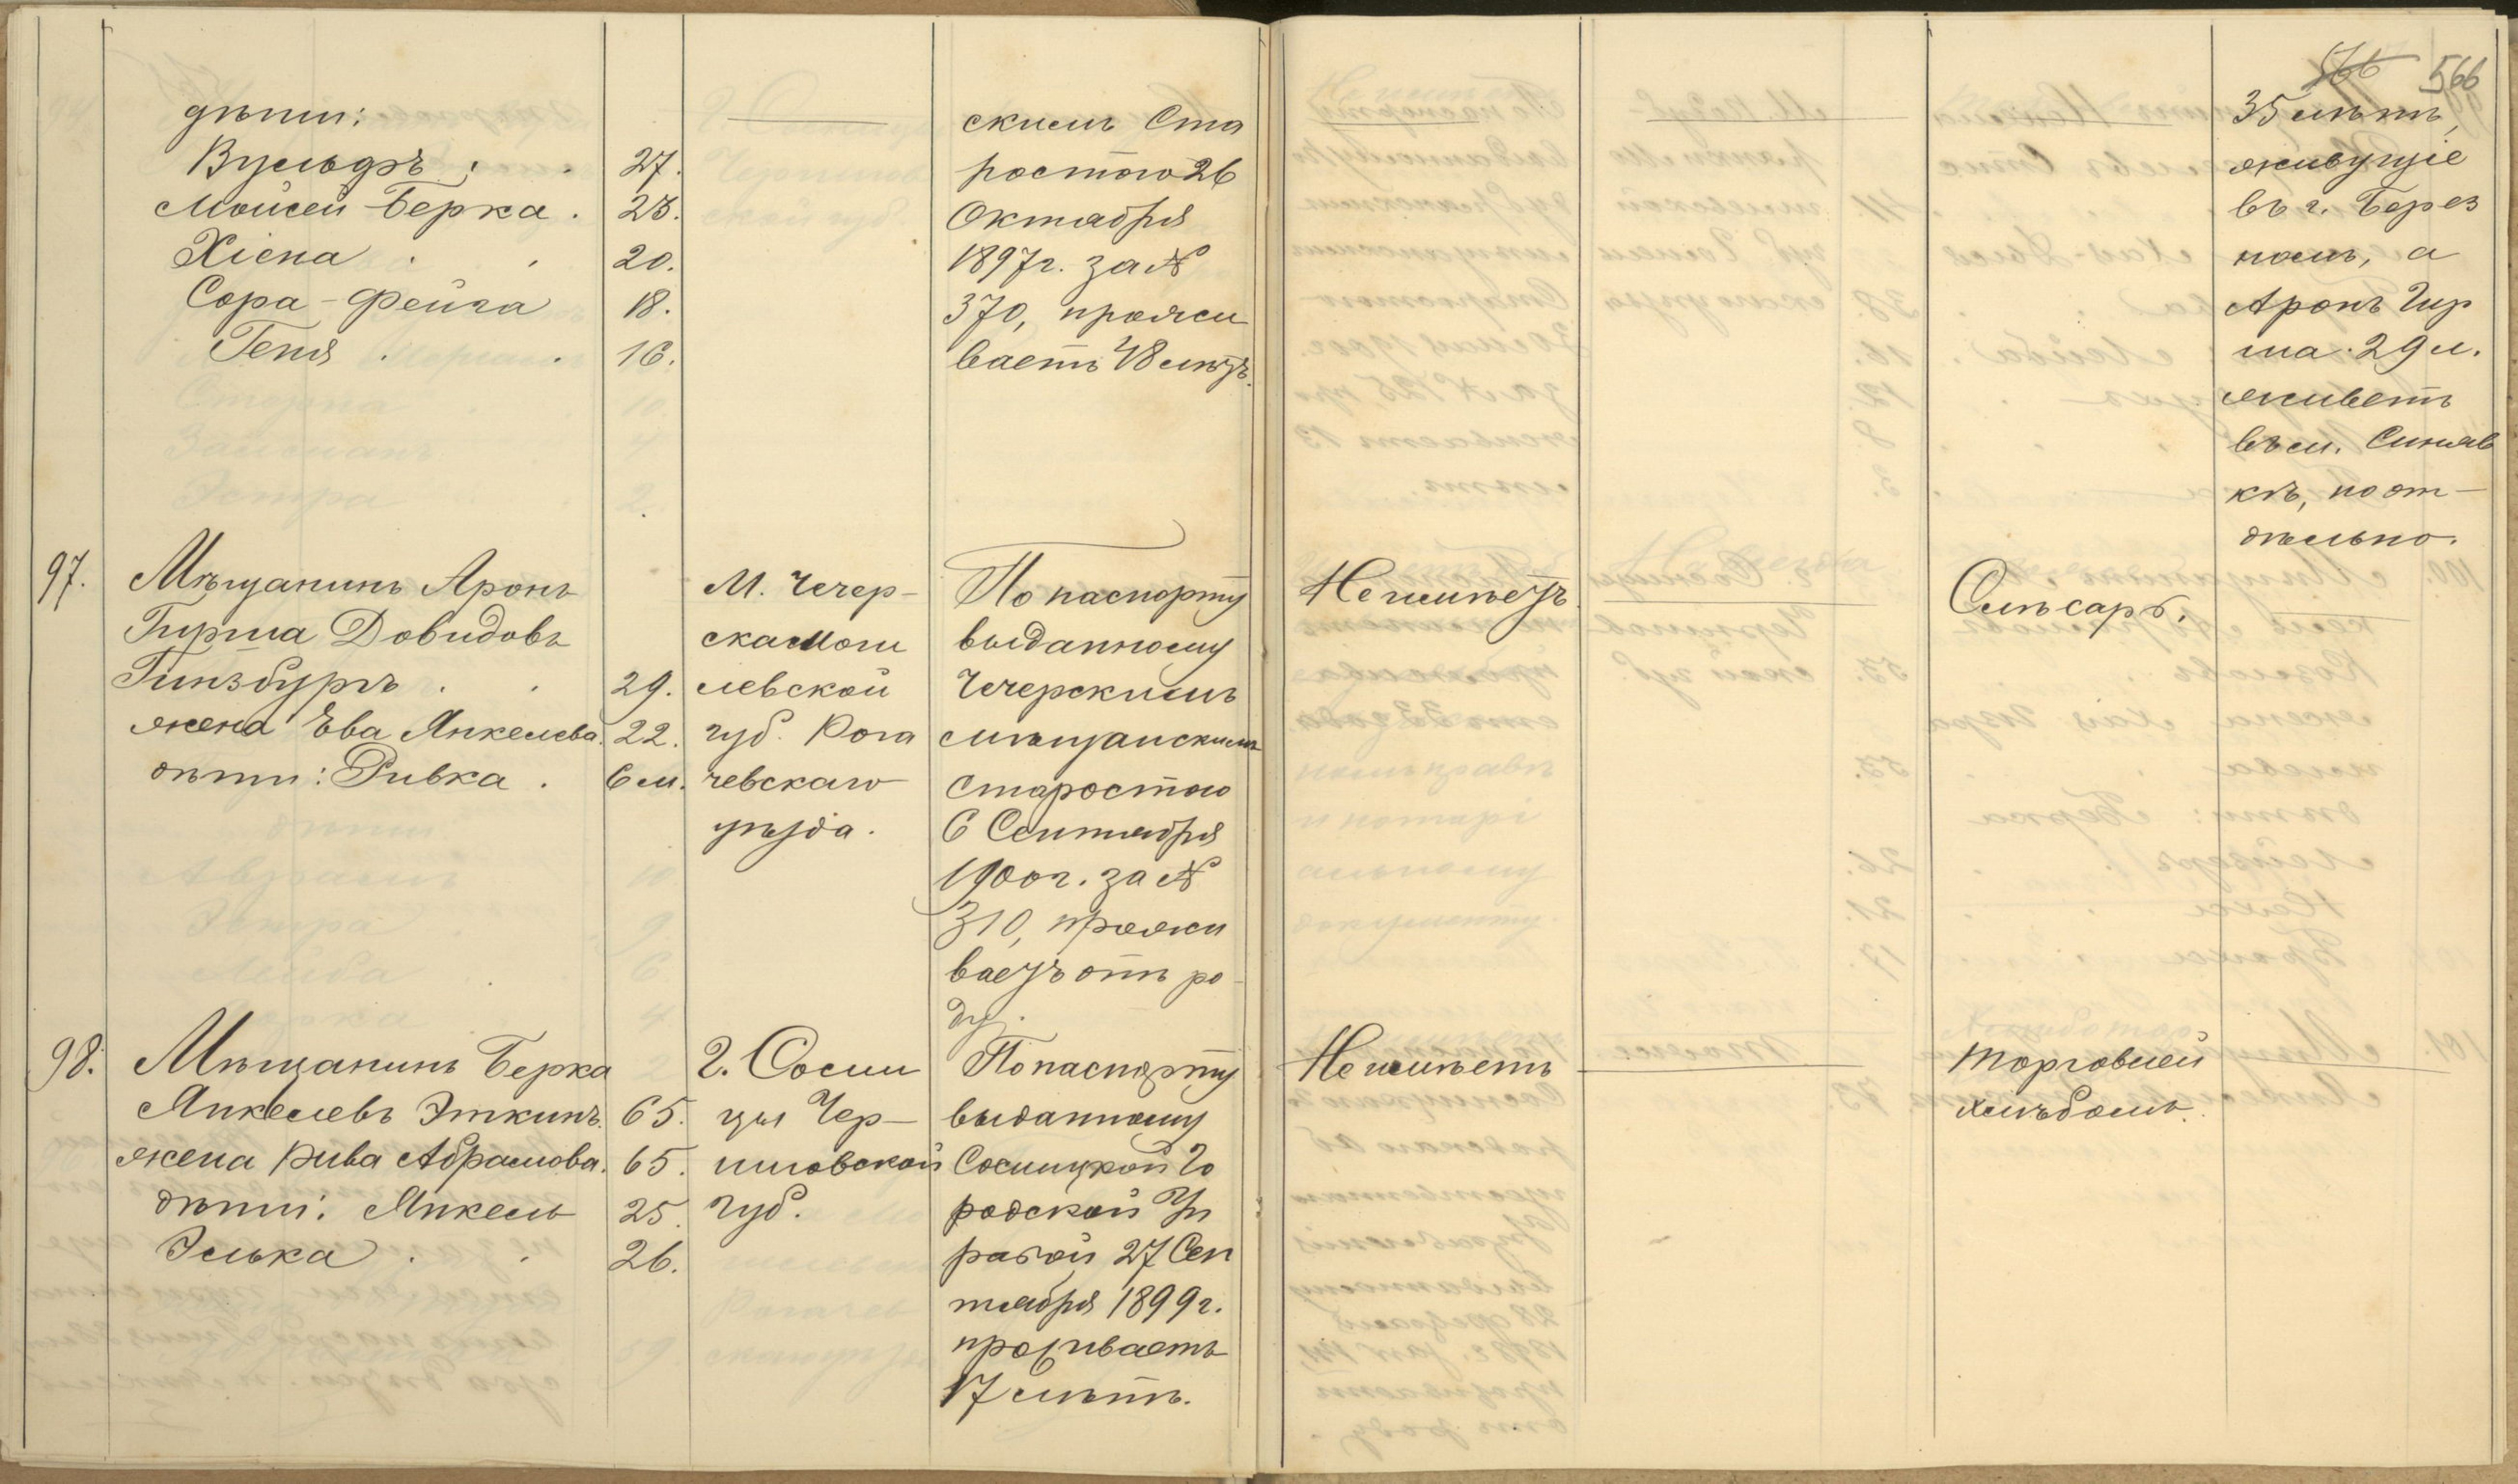 566
566
дѣти:
Вульфъ . . 27.
Мойсей-Берка . 23.
Хiена . . 20.
Сора-Фейга 18.
Геня . . 16.
скимъ Ста
ростою 26
Октября
1897 г. за №
370, прожи
ваетъ 48 лѣтъ.
35 лѣтъ,
живущіе
въ г. Берез
номъ, а
Аронъ Гир
ша 29 л.
живетъ
въ м. Синяв
кѣ, по от-
дѣльно.
97. Мѣщанинъ Аронъ
Гирша Довидовъ
Гинзбургъ . . 29.
жена Ева Янкелева. 22.
дѣти: Ривка . 6 м.
М. Чечер-
ска Моги
левской
губ. Рога
чевскаго
уѣзда.
По паспорту
выданному
Чечерскимъ
мѣщанскимъ
Старостою
6 Сентября
1900 г. за №
310, прожи
ваетъ отъ ро-
ду.
Не имѣетъ
Слѣсарь.
98. Мѣщанинъ Берка
Янкелевъ Эткинъ. 65.
жена Рива Абрамова. 65.
дѣти: Янкель 25.
Элька . . 26.
г. Сосни
цы Чер-
ниговской
губ.
По паспорту
выданному
Сосницкой Го
родской Уп
равой 27 Сен
тября 1899 г.
проживаетъ
17 лѣтъ.
Не имѣетъ
Торговлей
хлѣбомъ.